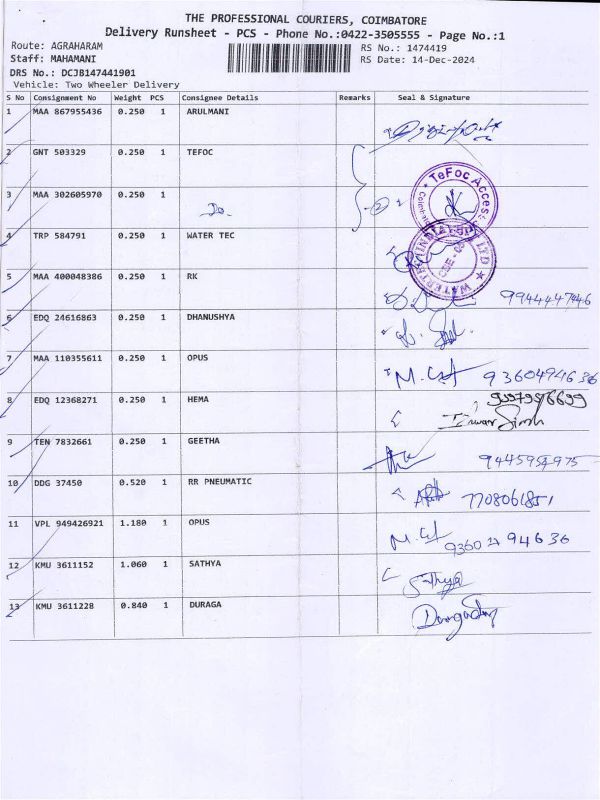 THE PROFESSIONAL COURIERS, COIMBATORE
Delivery Runsheet - PCS - Phone No.:0422-3505555 - Page No.:1
Route: AGRAHARAM RS No.: 1474419
Staff: MAHAMANI RS Date: 14-Dec-2024
DRS No.: DCJB147441901
Vehicle: Two Wheeler Delivery
S No Consignment No Weight PCS Consignee Details Remarks Seal & Signature
1 MAA 867955436 0.250 1 ARULMANI
2 GNT 503329 0.250 1 TEFOC
TeFoc Access
3 MAA 302605970 0.250 1 Do.
4 TRP 584791 0.250 1 WATER TEC
5 MAA 400048386 0.250 1 RK 9944447946
6 EDQ 24616863 0.250 1 DHANUSHYA
7 MAA 110355611 0.250 1 OPUS 9360494636
8 EDQ 12368271 0.250 1 HEMA
9 TEN 7832661 0.250 1 GEETHA
10 DDG 37450 0.520 1 RR PNEUMATIC 7708061851
11 VPL 949426921 1.180 1 OPUS
12 KMU 3611152 1.060 1 SATHYA Sathya
13 KMU 3611228 0.840 1 DURAGA